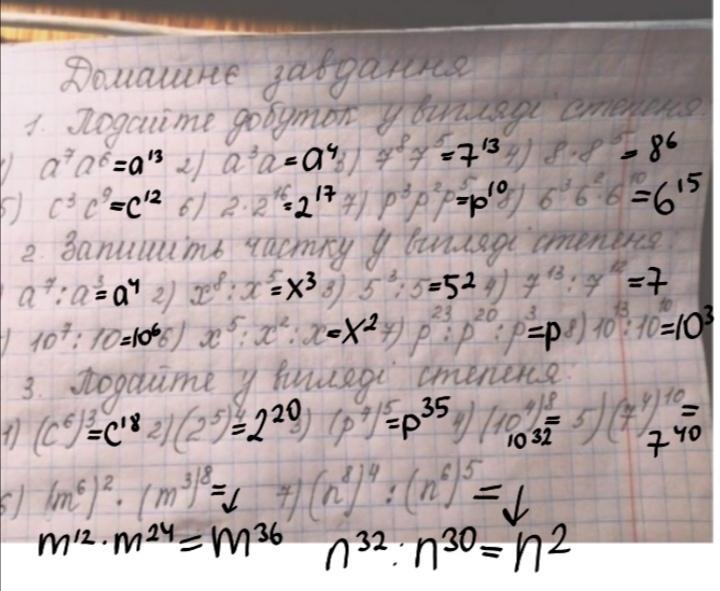 Домашнє завдання
1. Подайте добуток у вигляді степеня
) a⁷a⁶=a¹³ 2) a³a=a⁴ 3) 7⁸7⁵=7¹³ 4) 8·8⁵=8⁶
5) c³c⁹=c¹² 6) 2·2¹⁶=2¹⁷ 7) p³p²p⁵=p¹⁰ 8) 6³6²6¹⁰=6¹⁵
2. Запишіть частку у вигляді степеня.
a⁷:a³=a⁴ 2) x⁸:x⁵=x³ 3) 5³:5=5² 4) 7¹³:7¹²=7
) 10⁷:10=10⁶ 6) x⁵:x²:x=x² 7) p²³:p²⁰:p³=p 8) 10¹³:10¹⁰=10³
3. Подайте у вигляді степеня:
1) (c⁶)³=c¹⁸ 2) (2⁵)⁴=2²⁰ 3) (p⁷)⁵=p³⁵ 4) (10⁴)⁸=10³² 5) (7⁴)¹⁰=7⁴⁰
6) (m⁶)²·(m³)⁸=↓ 7) (n⁸)⁴:(n⁶)⁵=↓
m¹²·m²⁴=m³⁶ n³²:n³⁰=n²